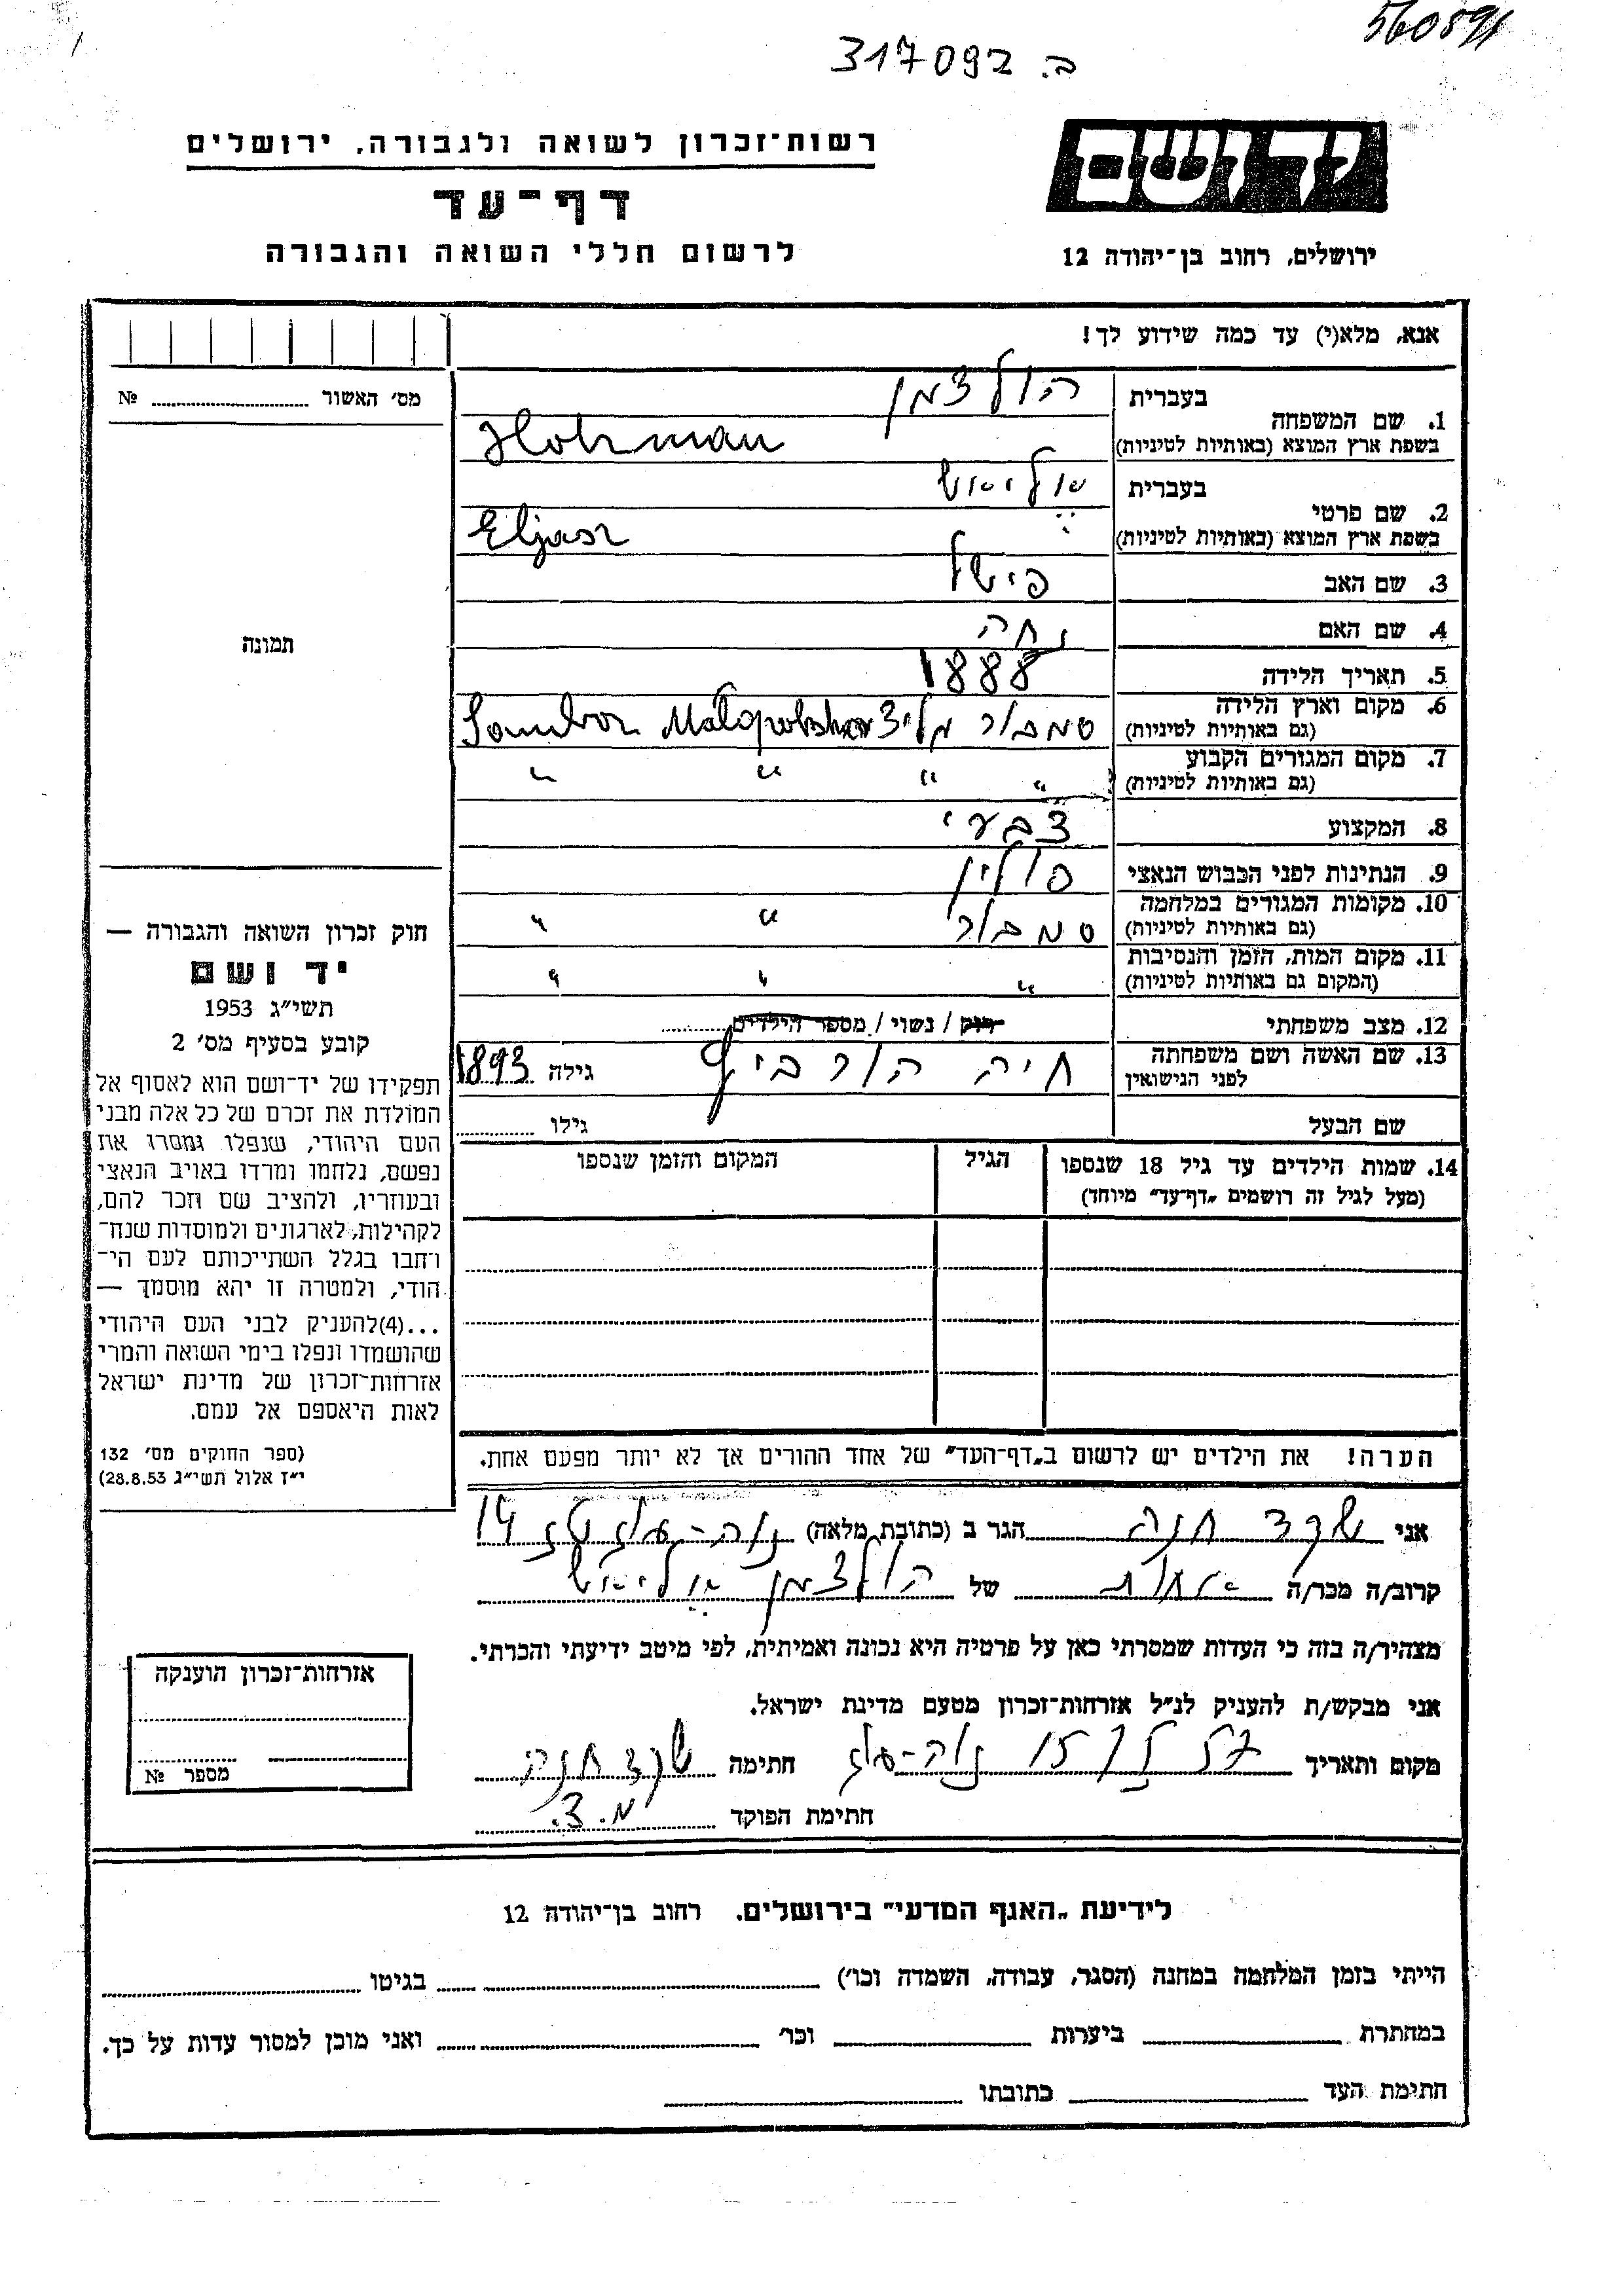 560891
ב. 317092
יד ושם
רשות־זכרון לשואה ולגבורה, ירושלים
דף־עד
לרשום חללי השואה והגבורה
ירושלים, רחוב בן־יהודה 12
אנא, מלא(י) עד כמה שידוע לך!
מס׳ האשור № 
1. שם המשפחה
בעברית הולצמן
בשפת ארץ המוצא (באותיות לטיניות) Holzman
2. שם פרטי
בעברית אליאש
בשפת ארץ המוצא (באותיות לטיניות) Eljasz
3. שם האב פישל
4. שם האם
5. תאריך הלידה 1888
6. מקום וארץ הלידה
(גם באותיות לטיניות) סמבור Sambor Małopolska
7. מקום המגורים הקבוע
(גם באותיות לטיניות) " " " "
8. המקצוע צבעי
9. הנתינות לפני הכבוש הנאצי פולין
10. מקומות המגורים במלחמה
(גם באותיות לטיניות) סמבור " "
11. מקום המות, הזמן והנסיבות
(המקום גם באותיות לטיניות) " " "
12. מצב משפחתי רוק / נשוי / מספר הילדים
13. שם האשה ושם משפחתה
לפני הנישואין חיה הורביץ גילה 1893
שם הבעל גילו
14. שמות הילדים עד גיל 18 שנספו הגיל המקום והזמן שנספו
(מעל לגיל זה רושמים „דף־עד" מיוחד)
הערה! את הילדים יש לרשום ב„דף־העד" של אחד ההורים אך לא יותר מפעם אחת.
תמונה
חוק זכרון השואה והגבורה —
יד ושם
תשי״ג 1953
קובע בסעיף מס׳ 2
תפקידו של יד־ושם הוא לאסוף אל
המולדת את זכרם של כל אלה מבני
העם היהודי, שנפלו ומסרו את
נפשם, נלחמו ומרדו באויב הנאצי
ובעוזריו, ולהציב שם וזכר להם,
לקהילות, לארגונים ולמוסדות שנח־
רבו בגלל השתייכותם לעם הי־
הודי, ולמטרה זו יהא מוסמך —
...(4)להעניק לבני העם היהודי
שהושמדו ונפלו בימי השואה והמרי
אזרחות־זכרון של מדינת ישראל
לאות היאספם אל עמם.
(ספר החוקים מס׳ 132
י״ז אלול תשי״ג 28.8.53)
אני שקד חנה הגר ב (כתובת מלאה) 14
קרוב/ה מכר/ה אחות של הולצמן אליאש
מצהיר/ה בזה כי העדות שמסרתי כאן על פרטיה היא נכונה ואמיתית, לפי מיטב ידיעתי והכרתי.
אני מבקש/ת להעניק לנ״ל אזרחות־זכרון מטעם מדינת ישראל.
מקום ותאריך חתימה שקד חנה
חתימת הפוקד מ. צ.
אזרחות־זכרון הוענקה
מספר №
לידיעת „האגף המדעי" בירושלים, רחוב בן־יהודה 12
הייתי בזמן המלחמה במחנה (הסגר, עבודה, השמדה וכו׳) בגיטו
במחתרת ביערות וכו׳ ואני מוכן למסור עדות על כך.
חתימת העד כתובתו